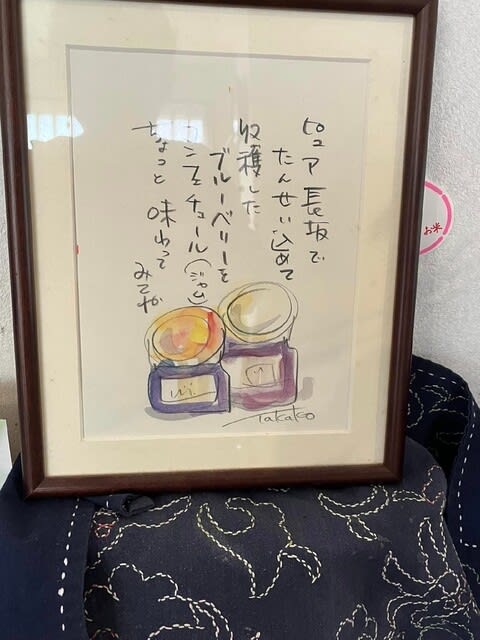 ピュア長坂で
たんせい込めて
収穫した
ブルーベリーを
コンフェチュール(ジャム)
ちょっと味わって
みてネ
Takako
お米